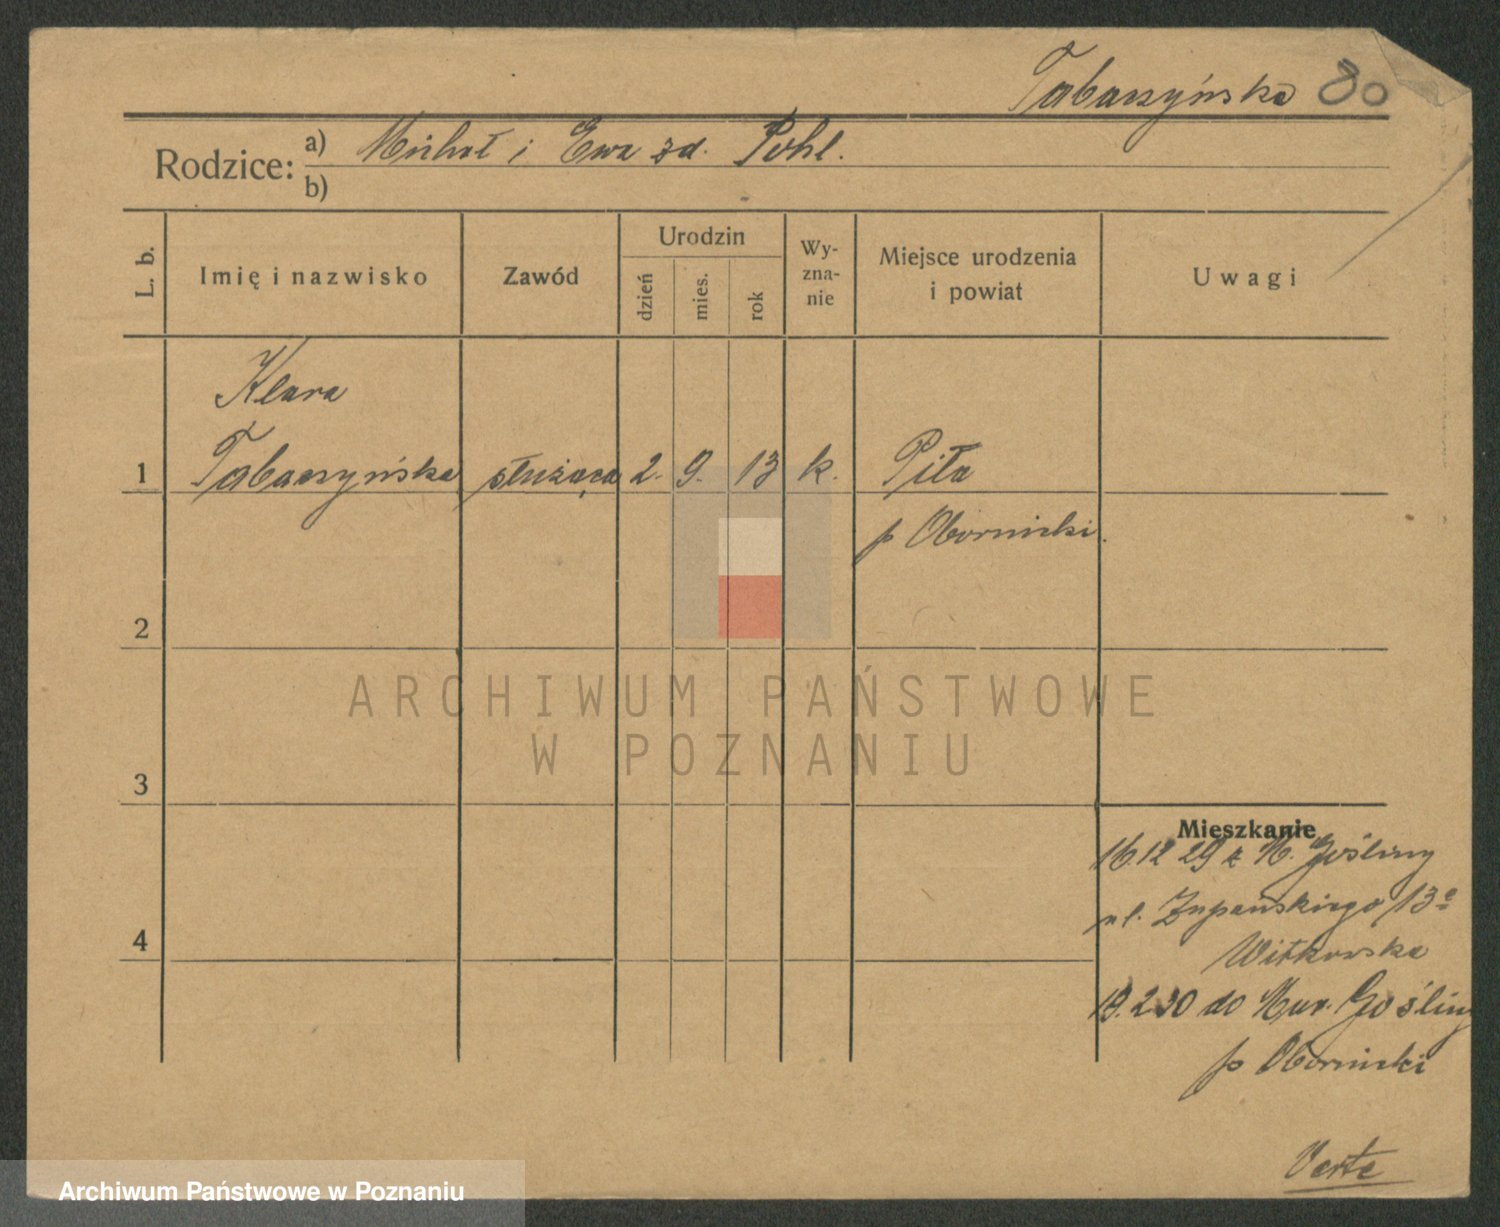 Tabaczyńska 80
Rodzice: a) Michał i Ewa zd. Pohl.
b)
L. b.
Imię i nazwisko
Zawód
Urodzin
dzień
mies.
rok
Wy-
zna-
nie
Miejsce urodzenia
i powiat
Uwagi
Klara
1 Tabaczyńska służąca 2. 9. 13 k. Piła
p Obornicki.
2
ARCHIWUM PAŃSTWOWE
W POZNANIU
3
Mieszkanie
16.12 29 z M. Gośliny
4
ul. Żupańskiego 13a
Witkowska
19.2 30 do Mur. Gośliny
p Obornicki
Verte
Archiwum Państwowe w Poznaniu